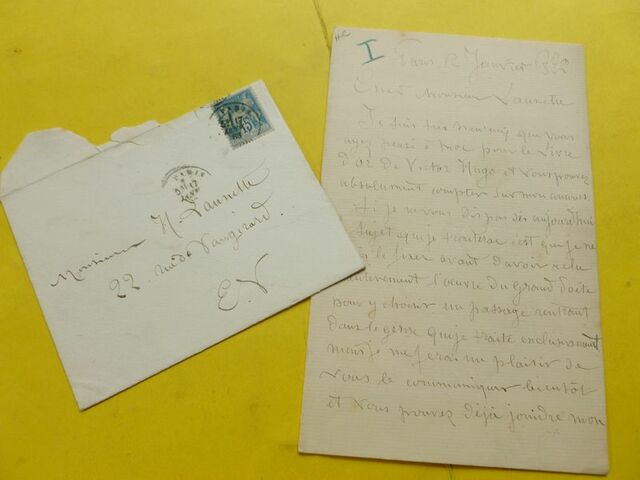 HR
I
Paris 12 Janvier
Cher Monsieur Launette
Je suis très heureux que vous
ayez pensé à moi pour le Livre
d'or de Victor Hugo et vous pouvez
absolument compter sur mon concours
Si je ne vous dis pas dès aujourd'hui
le sujet que je traiterai c'est que je ne
le fixer avant d'avoir relu
entièrement l'œuvre du Grand Poète
pour y choisir un passage rentrant
dans le genre que je traite exclusivement
mais je me ferai un plaisir de
vous le communiquer bientôt
et vous pouvez déjà joindre mon
PARIS
15
PARIS
17
JANV
Monsieur H. Launette
22 rue de Vaugirard.
E.V